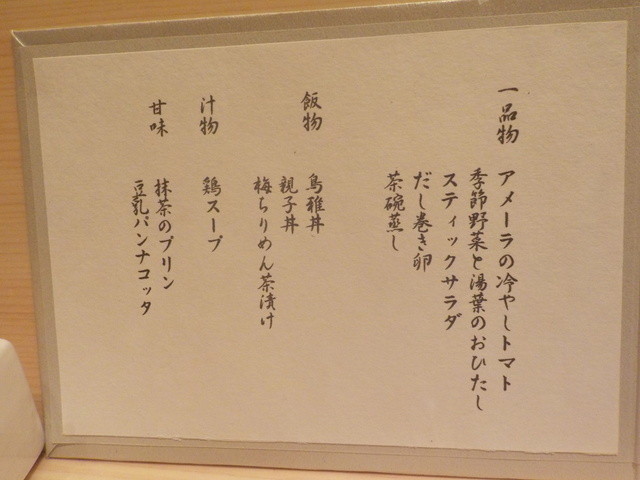 一品物
アメーラの冷やしトマト
季節野菜と湯葉のおひたし
スティックサラダ
だし巻き卵
茶碗蒸し
飯物
鳥雅丼
親子丼
梅ちりめん茶漬け
汁物
鶏スープ
甘味
抹茶のプリン
豆乳パンナコッタ